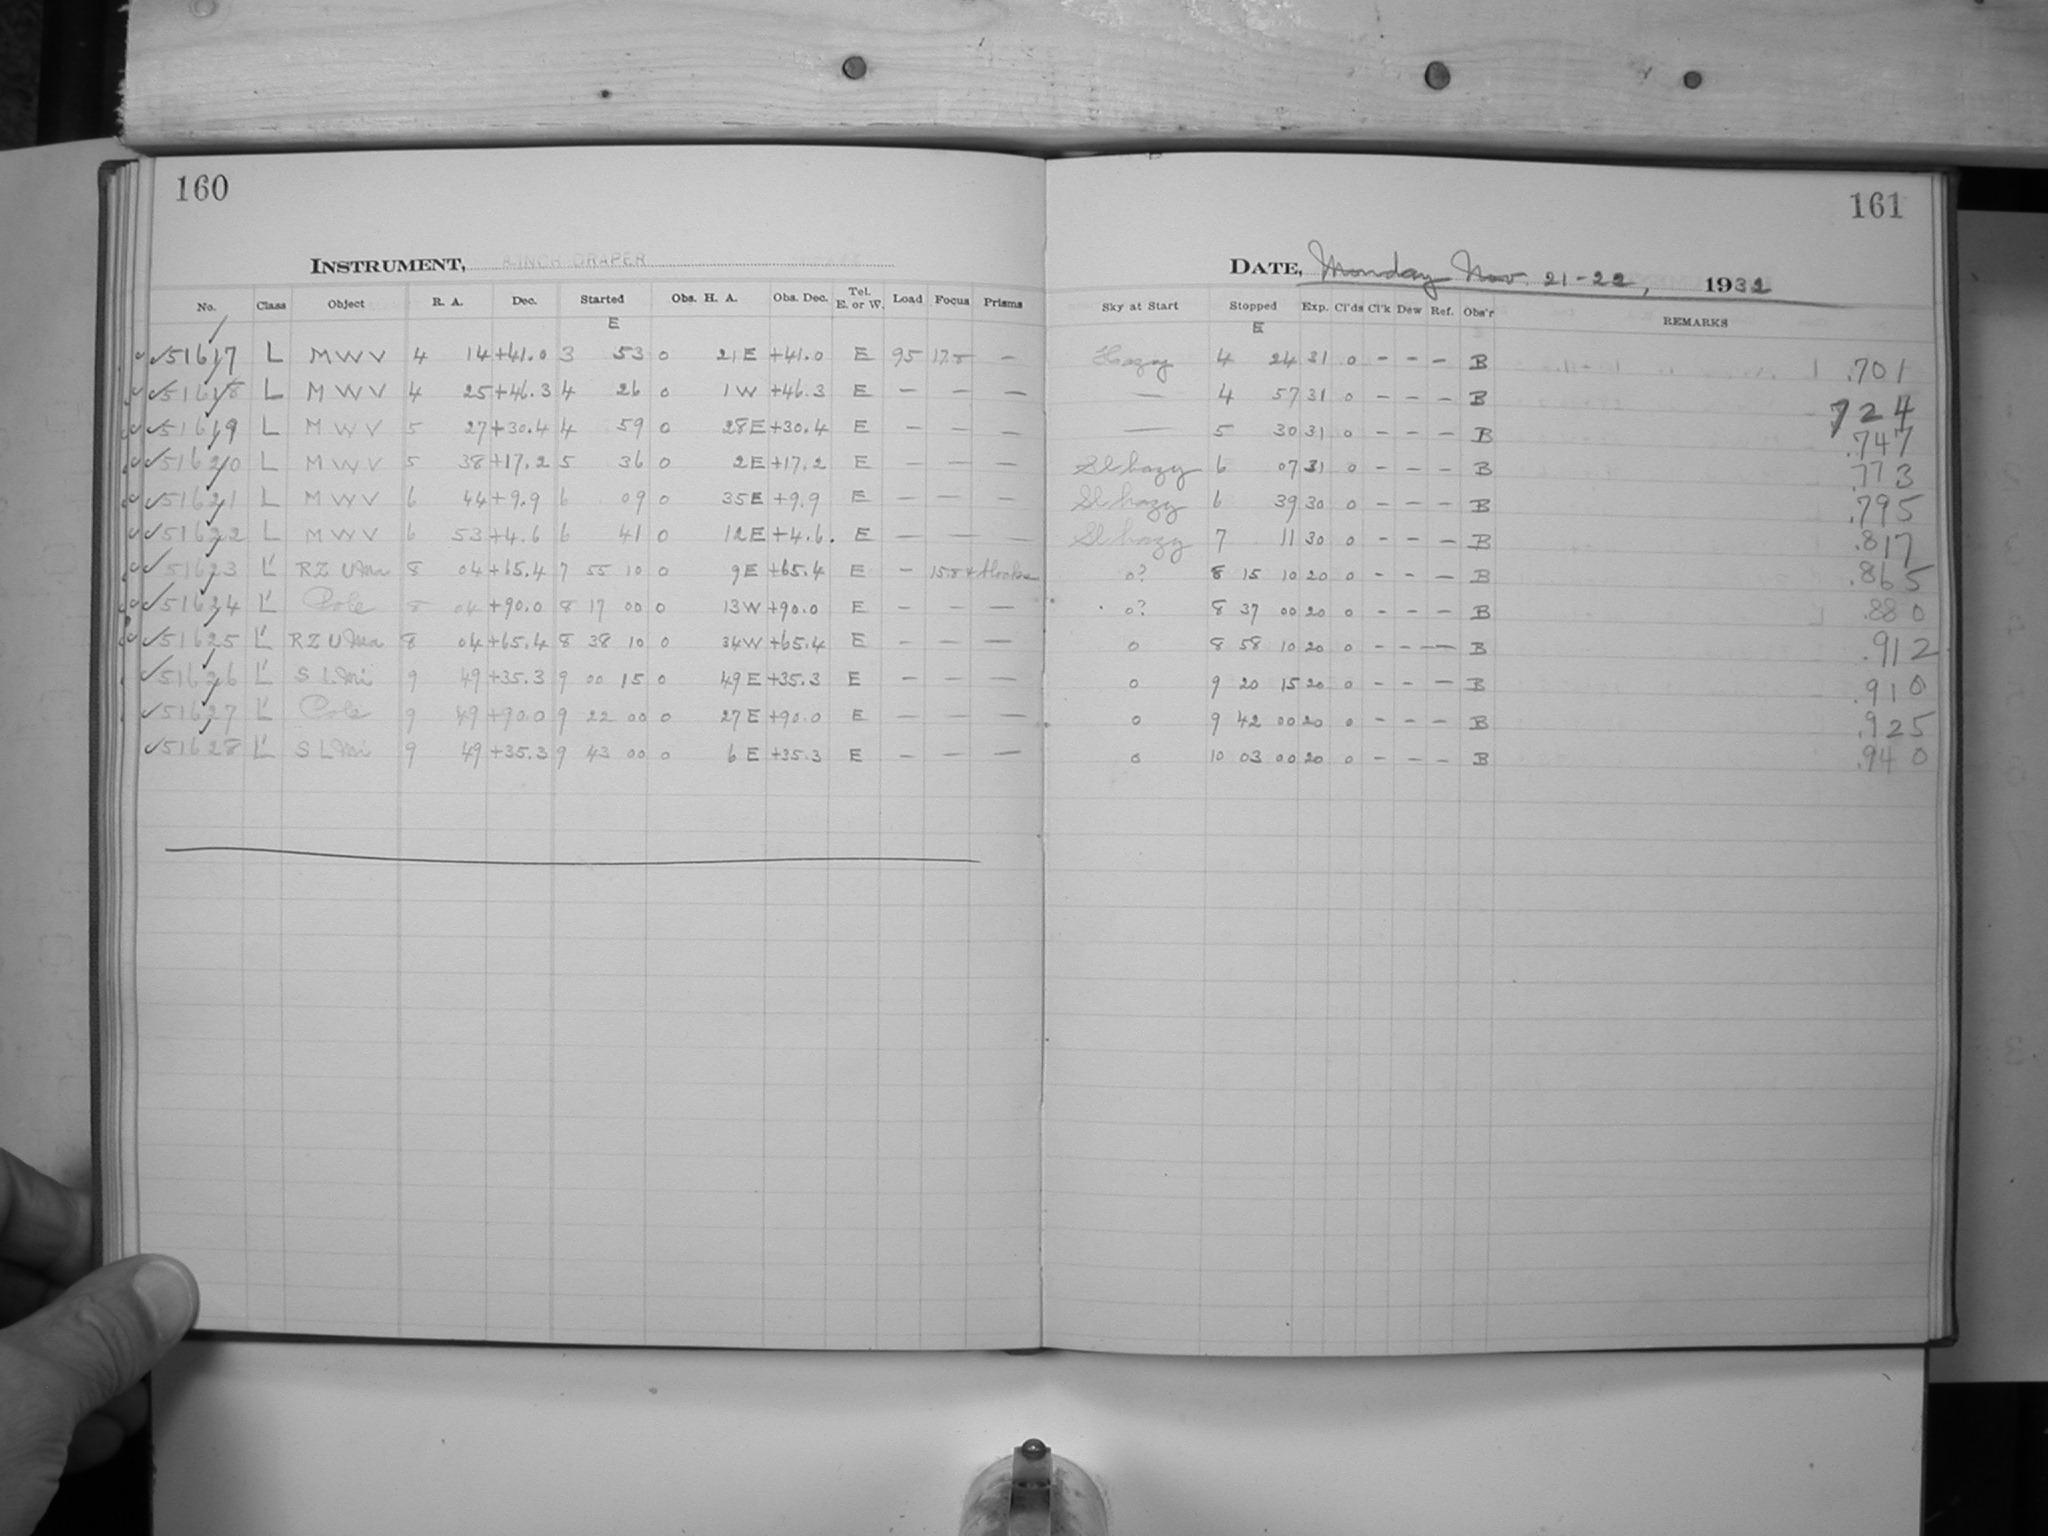 160
INSTRUMENT, 8-INCH DRAPER
No. Class Object R. A. Dec. Started Obs. H. A. Obs. Dec. Tel. E. or W. Load Focus Prisms
E
51617 L M W V 4 14 +41.0 3 53 0 21 E +41.0 E 95 17.5 —
51618 L M W V 4 25 +46.3 4 26 0 1 W +46.3 E — — —
51619 L M W V 5 27 +30.4 4 59 0 28 E +30.4 E — — —
51620 L M W V 5 38 +17.2 5 36 0 2 E +17.2 E — — —
51621 L M W V 6 44 +9.9 6 09 0 35 E +9.9 E — — —
51622 L M W V 6 53 +4.6 6 41 0 12 E +4.6. E — — —
51623 L' R Z U Ma 8 04 +65.4 7 55 10 0 9 E +65.4 E —
51624 L' Pole 8 04 +90.0 8 17 00 0 13 W +90.0 E — — —
51625 L' R Z U Ma 8 04 +65.4 8 38 10 0 34 W +65.4 E — — —
51626 L' S L Mi 9 49 +35.3 9 00 15 0 49 E +35.3 E — — —
51627 L' Pole 9 49 +90.0 9 22 00 0 27 E +90.0 E — — —
51628 L' S L Mi 9 49 +35.3 9 43 00 0 6 E +35.3 E — — —
161
DATE, Monday Nov. 21-22, 1932
Sky at Start Stopped Exp. Cl'ds Cl'k Dew Ref. Obs'r REMARKS
E
Hazy 4 24 31 0 - - - B .701
— 4 57 31 0 - - - B 724
— 5 30 31 0 - - - B .747
Sl hazy 6 07 31 0 - - - B .773
Sl hazy 6 39 30 0 - - - B .795
Sl hazy 7 11 30 0 - - - B .817
0? 8 15 10 20 0 - - - B .865
0? 8 37 00 20 0 - - - B .880
0 8 58 10 20 0 - - - B .912
0 9 20 15 20 0 - - - B .910
0 9 42 00 20 0 - - - B .925
0 10 03 00 20 0 - - - B .940